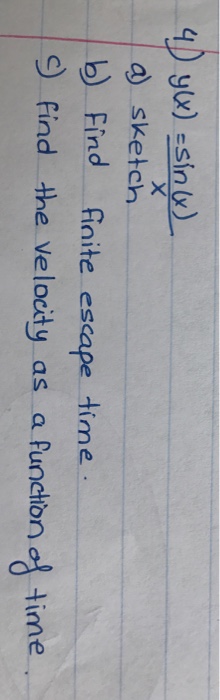 4) y(x) = sin(x)
x
a) sketch
b) find finite escape time.
c) find the velocity as a function of time.